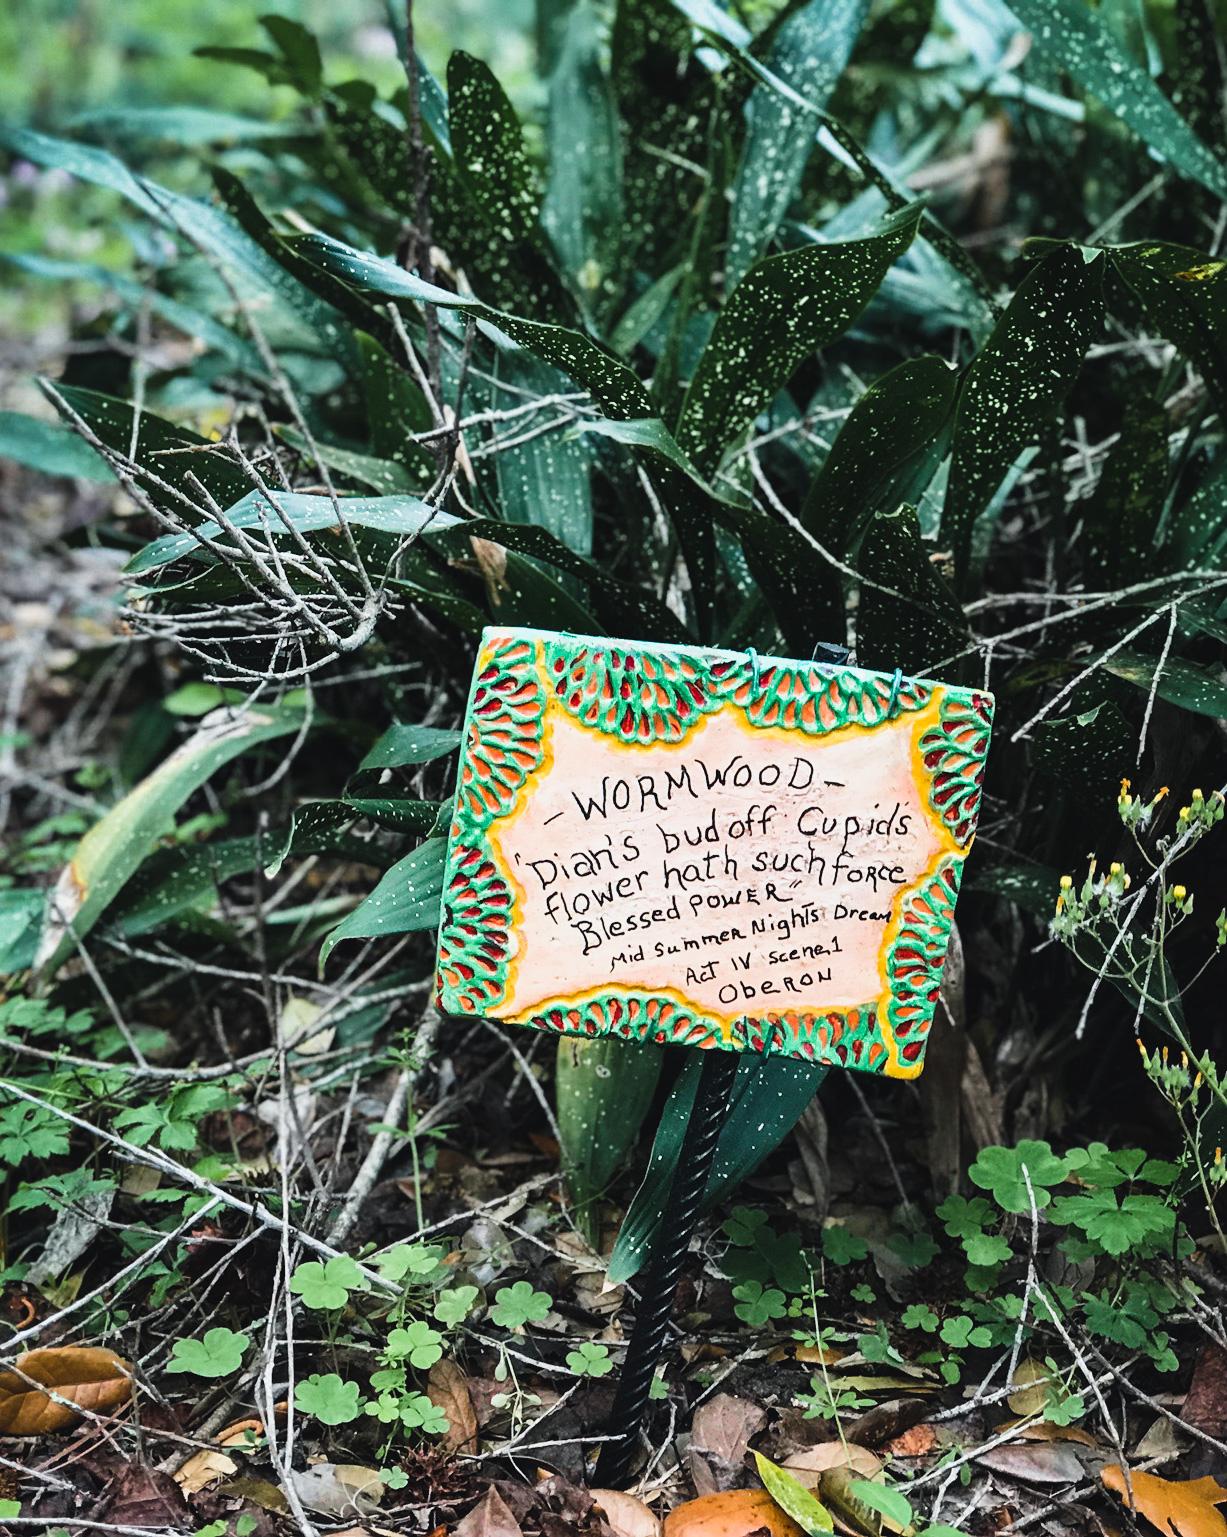 - WORMWOOD -
'Dian's bud off Cupids
flower hath such force
Blessed POWER"
Mid Summer Nights Dream
Act IV scene 1
Oberon